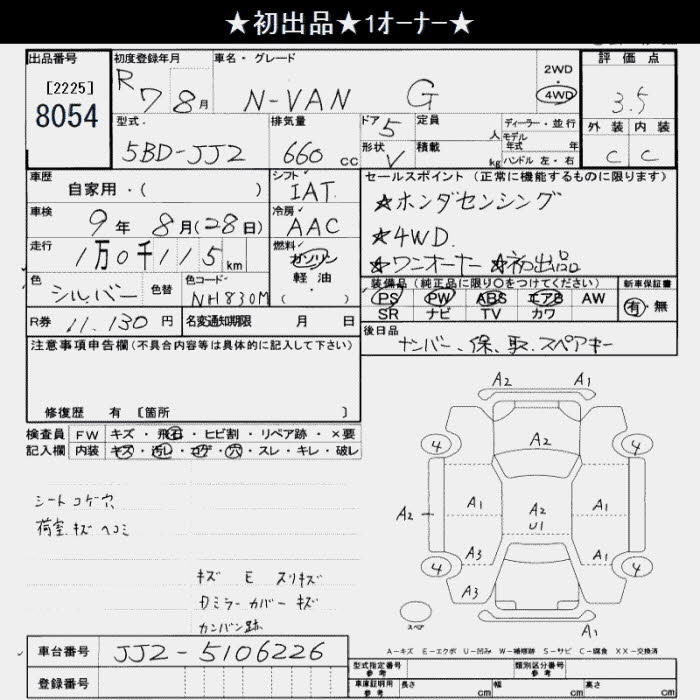 ★初出品★1オーナー★
出品番号 初度登録年月 車名・グレード 評価点
[2225]
8054
R7 8月 N-VAN G 2WD・4WD 3.5
型式 排気量 ドア 定員 人 ディーラー・並行 外装 内装
5BD-JJ2 660cc 5 モデル年式 年
形状 V 積載 kg ハンドル 左・右 C C
車歴 自家用・( ) シフト IAT セールスポイント (正常に機能するものに限ります)
車検 9年 8月(28日) 冷房 AAC ★ホンダセンシング
走行 1万0千115km 燃料 ガソリン ★4WD.
軽油 ( ) ★ワンオーナー ★初出品
色 シルバー 色替 色コード NH830M 装備品 (純正品に限り○をつけてください) 新車保証書
PS PW ABS エアB AW 有・無
SR ナビ TV カワ
R券 11.130円 名変通知期限 月 日 後日品
ナンバー、保、取、スペアキー
注意事項申告欄(不具合内容等は具体的に記入して下さい)
修復歴 有 〔箇所 〕
検査員 FW キズ・飛石・ヒビ割・リペア跡・×要
記入欄 内装 キズ・汚レ・コゲ・穴・スレ・キレ・破レ
シートコゲ穴
荷室.キズ ヘコミ
キズ E スリキズ
Dミラーカバーキズ
カンバン跡
A2 A1
4 A2 4
A2 A1 A2 U1 A1
A3 A1
4 4
A3
スペア A1
A-キズ E-エクボ U-凹み W-補修跡 S-サビ C-腐食 XX-交換済
車台番号 JJ2-5106226
登録番号
型式指定番号 参考 類別区分番号 参考
車庫証明用 参考 長さ cm 幅 cm 高さ cm